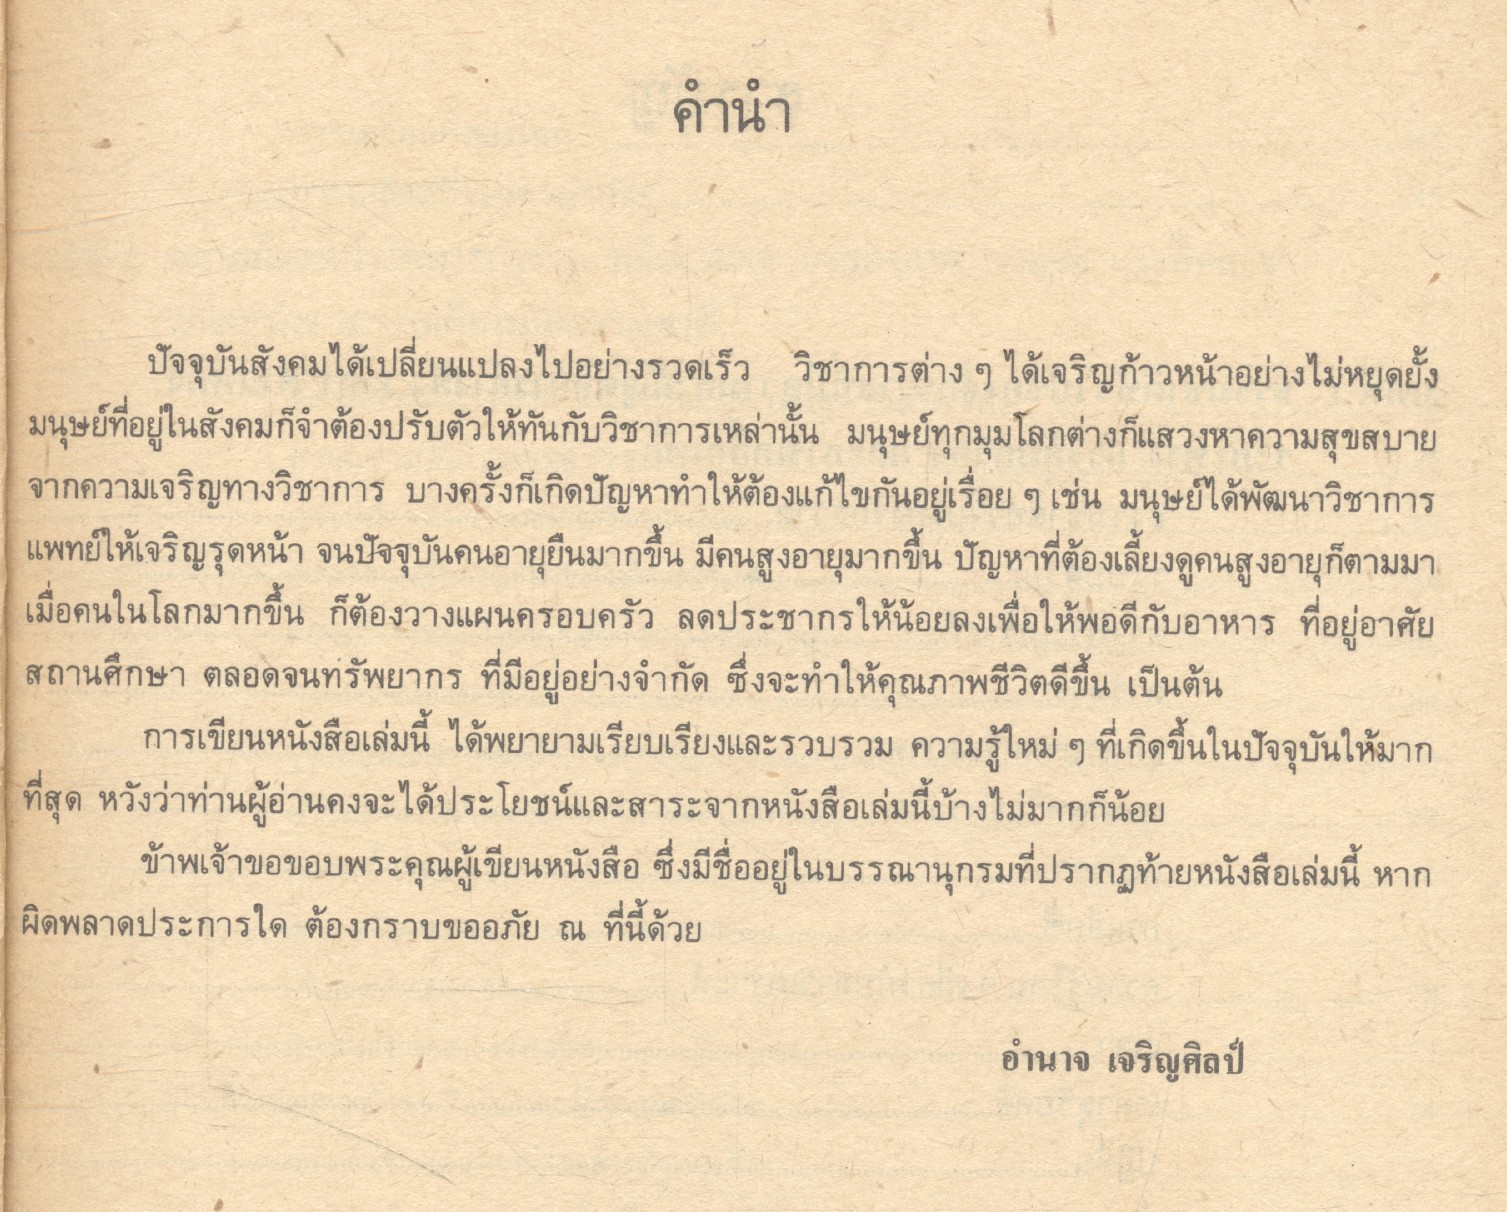 คำนำ
ปัจจุบันสังคมได้เปลี่ยนแปลงไปอย่างรวดเร็ว วิชาการต่าง ๆ ได้เจริญก้าวหน้าอย่างไม่หยุดยั้ง
มนุษย์ที่อยู่ในสังคมก็จำต้องปรับตัวให้ทันกับวิชาการเหล่านั้น มนุษย์ทุกมุมโลกต่างก็แสวงหาความสุขสบาย
จากความเจริญทางวิชาการ บางครั้งก็เกิดปัญหาทำให้ต้องแก้ไขกันอยู่เรื่อย ๆ เช่น มนุษย์ได้พัฒนาวิชาการ
แพทย์ให้เจริญรุดหน้า จนปัจจุบันคนอายุยืนมากขึ้น มีคนสูงอายุมากขึ้น ปัญหาที่ต้องเลี้ยงดูคนสูงอายุก็ตามมา
เมื่อคนในโลกมากขึ้น ก็ต้องวางแผนครอบครัว ลดประชากรให้น้อยลงเพื่อให้พอดีกับอาหาร ที่อยู่อาศัย
สถานศึกษา ตลอดจนทรัพยากร ที่มีอยู่อย่างจำกัด ซึ่งจะทำให้คุณภาพชีวิตดีขึ้น เป็นต้น
การเขียนหนังสือเล่มนี้ ได้พยายามเรียบเรียงและรวบรวม ความรู้ใหม่ ๆ ที่เกิดขึ้นในปัจจุบันให้มาก
ที่สุด หวังว่าท่านผู้อ่านคงจะได้ประโยชน์และสาระจากหนังสือเล่มนี้บ้างไม่มากก็น้อย
ข้าพเจ้าขอขอบพระคุณผู้เขียนหนังสือ ซึ่งมีชื่ออยู่ในบรรณานุกรมที่ปรากฏท้ายหนังสือเล่มนี้ หาก
ผิดพลาดประการใด ต้องกราบขออภัย ณ ที่นี้ด้วย
อำนาจ เจริญศิลป์